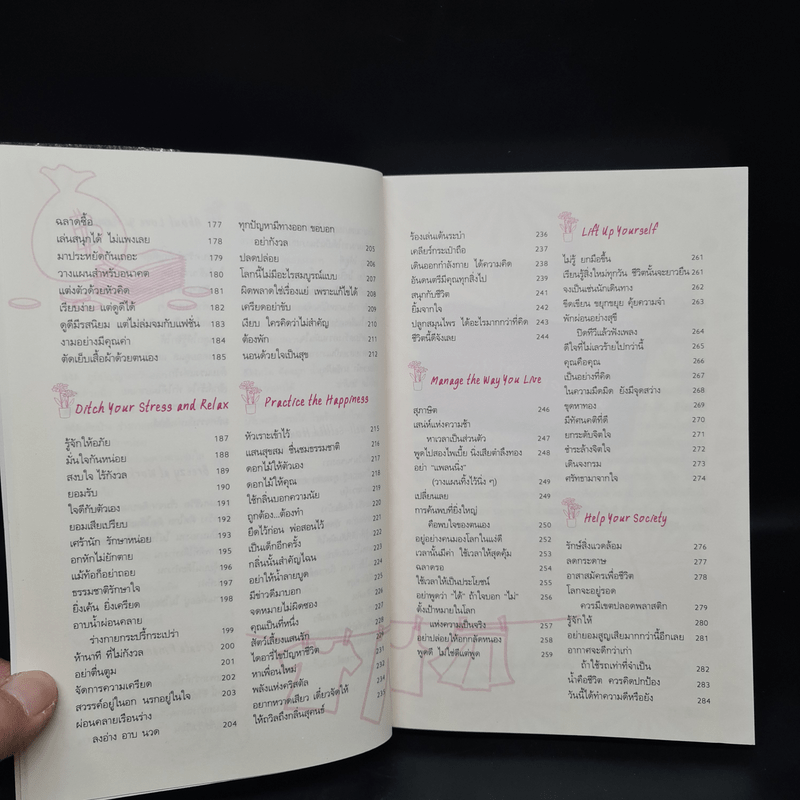 ฉลาดซื้อ 177
เล่นสนุกได้ ไม่แพงเลย 178
มาประหยัดกันเถอะ 179
วางแผนสำหรับอนาคต 180
แต่งตัวด้วยหัวคิด 181
เรียบง่าย แต่ดูดีได้ 182
ดูดีมีรสนิยม แต่ไม่ล่มจมกับแฟชั่น 183
งามอย่างมีคุณค่า 184
ตัดเย็บเสื้อผ้าด้วยตนเอง 185
Ditch Your Stress and Relax
รู้จักให้อภัย 187
มั่นใจกันหน่อย 188
สงบใจ ไร้กังวล 189
ยอมรับ 190
ใจดีกับตัวเอง 191
ยอมเสียเปรียบ 192
เศร้านัก รักษาหน่อย 193
อกหักไม่ยักตาย 195
แม้ท้อก็อย่าถอย 196
ธรรมชาติรักษาใจ 197
ยิ่งเต้น ยิ่งเครียด 198
อาบน้ำผ่อนคลาย
ร่างกายกระปรี้กระเปร่า 199
ห้านาที ที่ไม่กังวล 200
อย่าตื่นตูม 201
จัดการความเครียด 202
สวรรค์อยู่ในอก นรกอยู่ในใจ 203
ผ่อนคลายเรือนร่าง
ลงอ่าง อาบ นวด 204
ทุกปัญหามีทางออก ขอบอก
อย่ากังวล 205
ปลดปล่อย 206
โลกนี้ไม่มีอะไรสมบูรณ์แบบ 207
ผิดพลาดใช่เรื่องแย่ เพราะแก้ไขได้ 208
เครียดอย่าขับ 209
เงียบ ใครคิดว่าไม่สำคัญ 210
ต้องพัก 211
นอนด้วยใจเป็นสุข 212
Practice the Happiness
หัวเราะเข้าไว้ 215
แสนสุขสม ชื่นชมธรรมชาติ 216
ดอกไม้ให้ตัวเอง 217
ดอกไม้ให้คุณ 218
ใช้กลิ่นบอกความนัย 219
ถูกต้อง...ต้องทำ 220
ยืดไว้ก่อน พ่อสอนไว้ 221
เป็นเด็กอีกครั้ง 222
กลิ่นนั้นสำคัญไฉน 223
อย่าให้น้ำลายบูด
มีข่าวดีมาบอก
จดหมายไม่ผิดซอง
คุณเป็นที่หนึ่ง
สัตว์เลี้ยงแสนรัก
ไดอารี่ไขปัญหาชีวิต
หาเพื่อนใหม่
พลังแห่งคริสตัล
อยากหวาดเสียว เดี๋ยวจัดให้
ให้ถวิลถึงกลิ่นสุคนธ์ 235
ร้องเล่นเต้นระบำ 236
เคลียร์กระเป๋าถือ 237
เดินออกกำลังกาย ได้ความคิด 238
อันดนตรีมีคุณทุกสิ่งไป 239
สนุกกับชีวิต 241
ยิ้มจากใจ 242
ปลูกสมุนไพร ได้อะไรมากกว่าที่คิด 243
ชีวิตนี้ดีจังเลย 244
Manage the Way You Live
สุภาษิต 246
เสน่ห์แห่งความช้า
หาเวลาเป็นส่วนตัว 247
พูดไปสองไพเบี้ย นิ่งเสียตำลึงทอง 248
อย่า "แพลนนิ่ง"
(วางแผนทิ้งไว้นิ่ง ๆ) 249
เปลี่ยนเลย 249
การค้นพบที่ยิ่งใหญ่
คือพบใจของตนเอง 250
อยู่อย่างคนมองโลกในแง่ดี 252
เวลานั้นมีค่า ใช้เวลาให้สุดคุ้ม 253
ฉลาดรอ 254
ใช้เวลาให้เป็นประโยชน์ 255
อย่าพูดว่า "ได้" ถ้าใจบอก "ไม่" 256
ตั้งเป้าหมายในโลก
แห่งความเป็นจริง 257
อย่าปล่อยให้อกกลัดหนอง 258
พูดดี ไม่ใช่ดีแต่พูด 259
Lift Up Yourself
ไม่รู้ ยกมือขึ้น 261
เรียนรู้สิ่งใหม่ทุกวัน ชีวิตนั้นจะยาวยืน 261
จงเป็นเช่นนักเดินทาง 262
ขีดเขียน ขยุกขยุย คุ้ยความจำ 263
พักผ่อนอย่างสุขี
ปิดทีวีแล้วฟังเพลง 264
ดีใจที่ไม่เลวร้ายไปกว่านี้ 265
คุณคือคุณ 266
เป็นอย่างที่คิด 267
ในความมืดมิด ยังมีจุดสว่าง 268
ขุดหาทอง 269
มีทัศนคติที่ดี 270
ยกระดับจิตใจ 271
ชำระล้างจิตใจ 272
เดินจงกรม 273
ศรัทธามาจากใจ 274
Help Your Society
รักษ์สิ่งแวดล้อม 276
ลดกระดาษ 277
อาสาสมัครเพื่อชีวิต 278
โลกจะอยู่รอด
ควรมีเขตปลอดพลาสติก 279
รู้จักให้ 280
อย่ายอมสูญเสียมากกว่านี้อีกเลย 281
อากาศจะดีกว่าเก่า
ถ้าใช้รถเท่าที่จำเป็น 282
น้ำคือชีวิต ควรคิดปกป้อง 283
วันนี้ได้ทำความดีหรือยัง 284